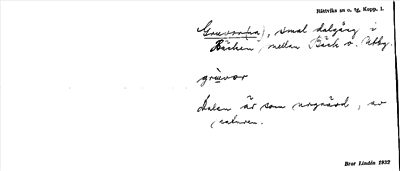 Rättviks sn o. tg, Kopp. l.
Gruvor(na), smal dalgång i
Bäcken, mellan Bäck o. Utby.
grùvor
Dalen är som urgrävd, av
naturen.
Bror Lindén 1932